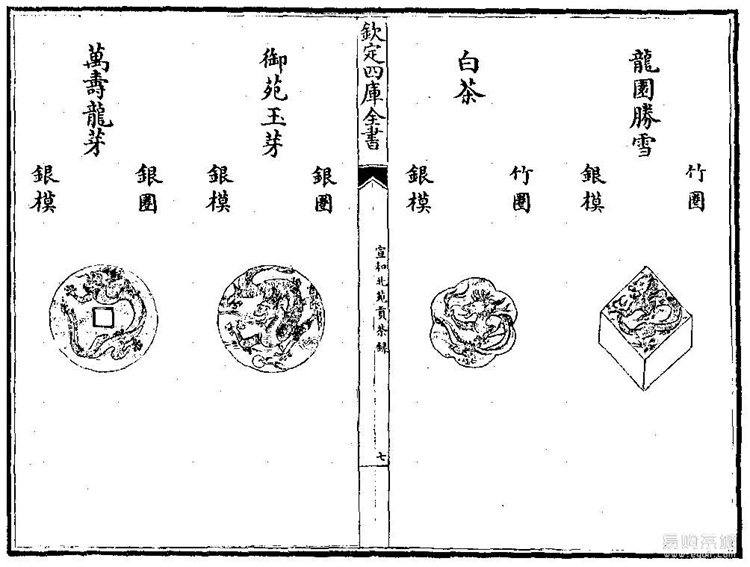 龍園勝雪
竹圈
銀模
白茶
竹圈
銀模
欽定四庫全書
宣和北苑貢茶録
七
御苑玉芽
銀圈
銀模
萬壽龍芽
銀圈
銀模